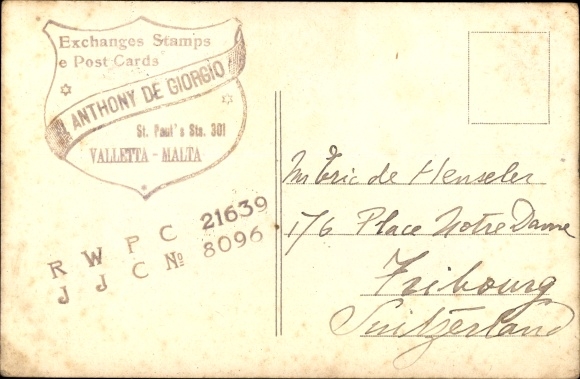 Exchanges Stamps
e Post Cards
ANTHONY DE GIORGIO
St. Paul's Sts. 301
VALLETTA - MALTA
R W P C 21639
J J C Nº 8096
Mr Eric de Henseler
176 Place Notre Dame
Fribourg
Suitzerland